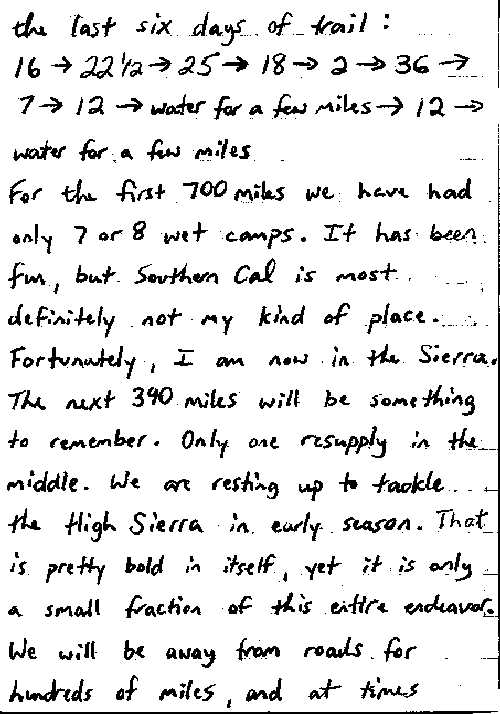 the last six days of trail :
16 → 22 1/2 → 25 → 18 → 2 → 36 →
7 → 12 → water for a few miles → 12 →
water for a few miles
For the first 700 miles we have had
only 7 or 8 wet camps. It has been
fun, but Southern Cal is most
definitely not my kind of place.
Fortunately, I am now in the Sierra.
The next 390 miles will be something
to remember. Only one resupply in the
middle. We are resting up to tackle
the High Sierra in early season. That
is pretty bold in itself, yet it is only
a small fraction of this entire endeavor.
We will be away from roads for
hundreds of miles, and at times